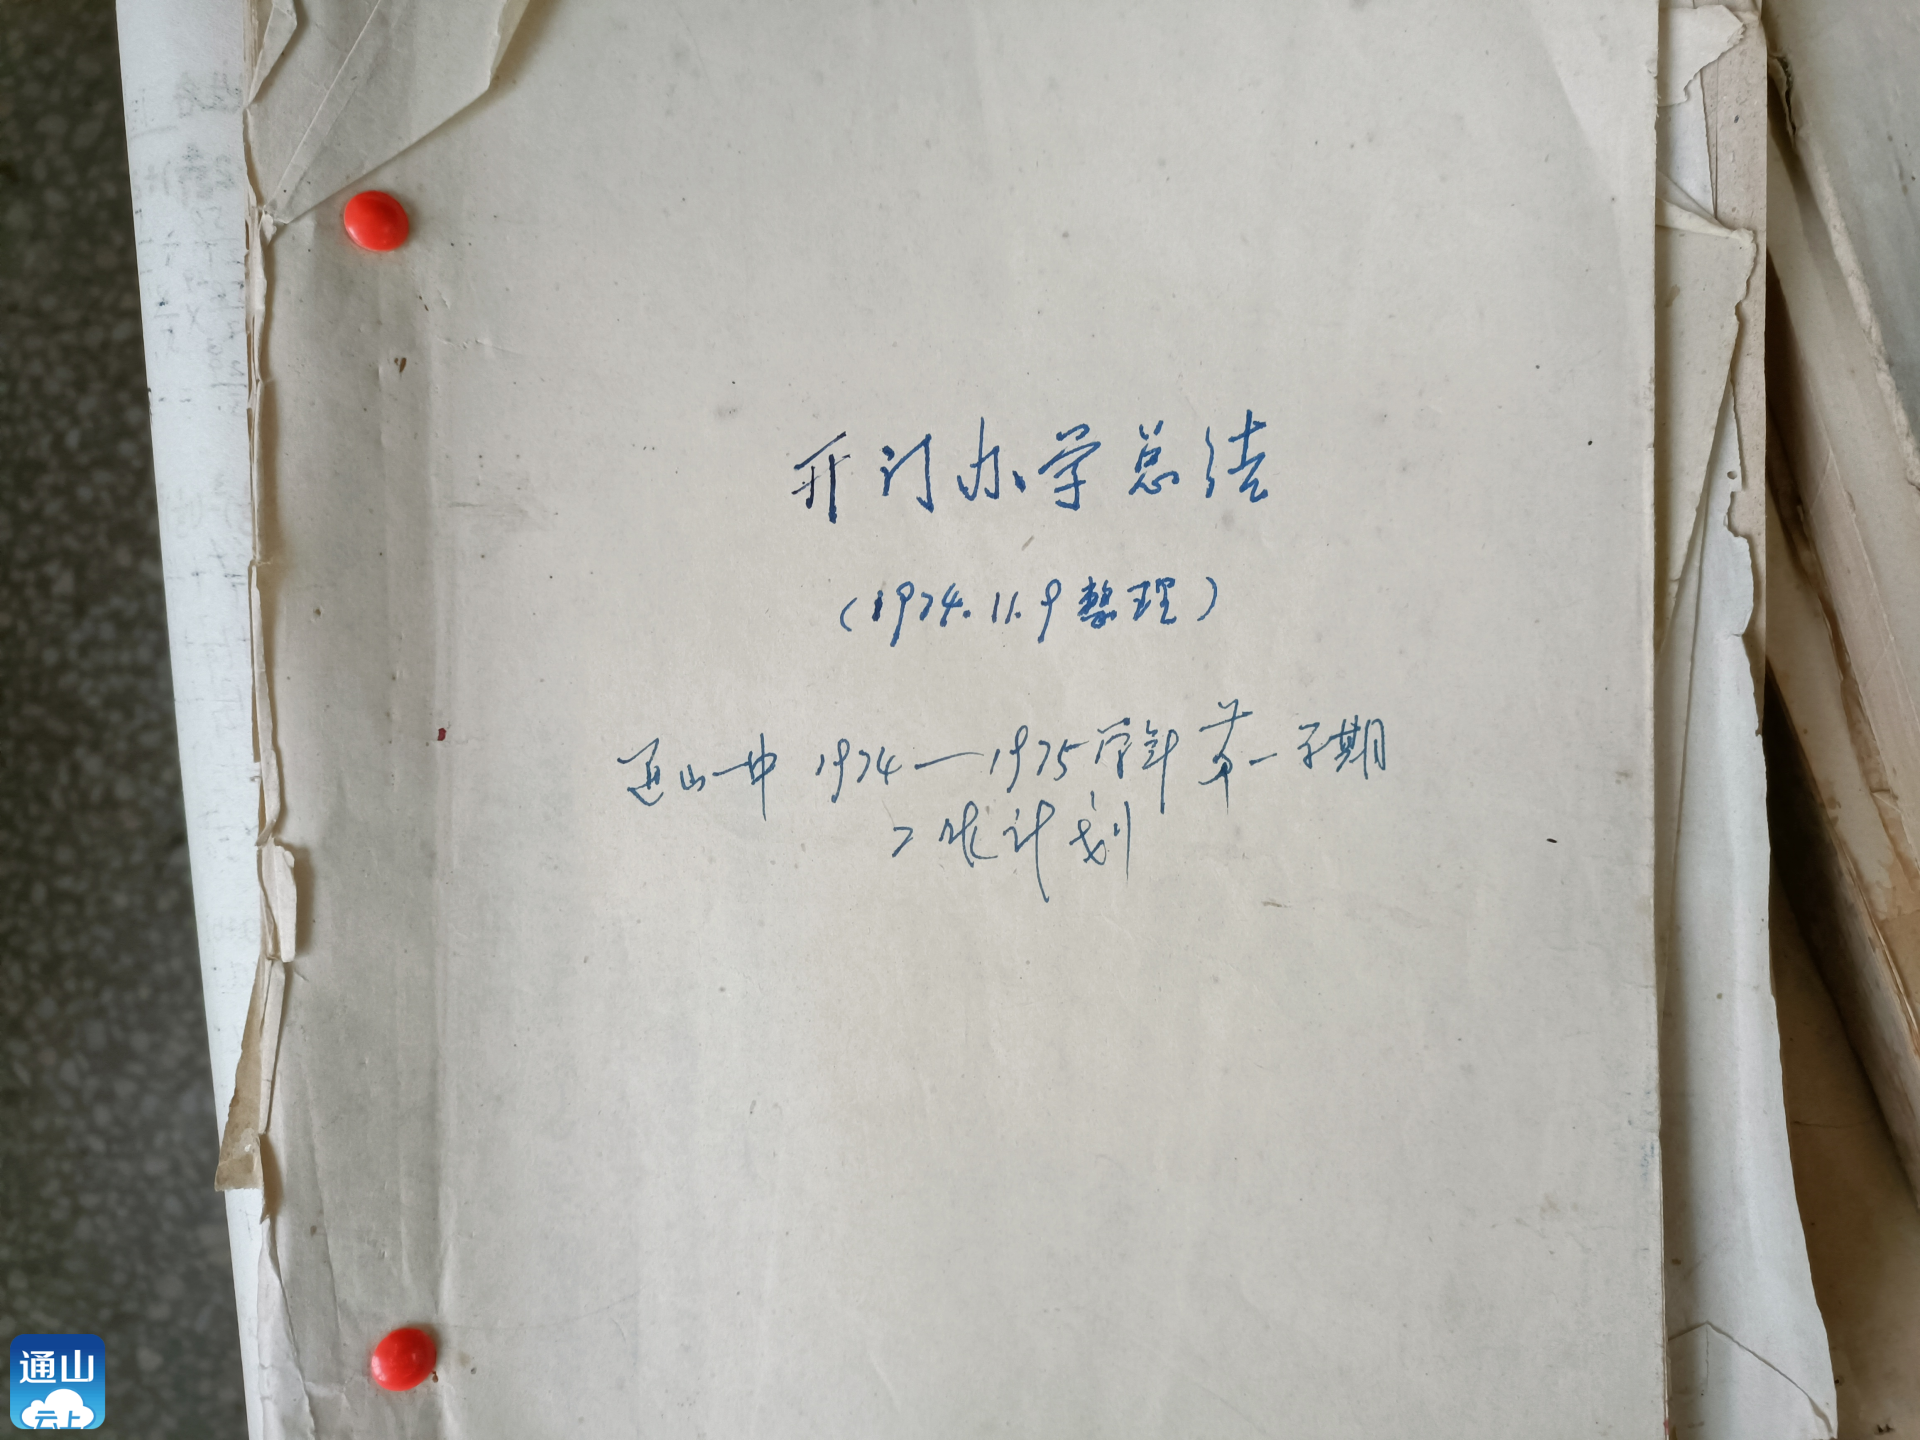 开门办学总结
（1974.11.9整理）
通山一中 1974—1975学年第一学期
工作计划
通山
云上